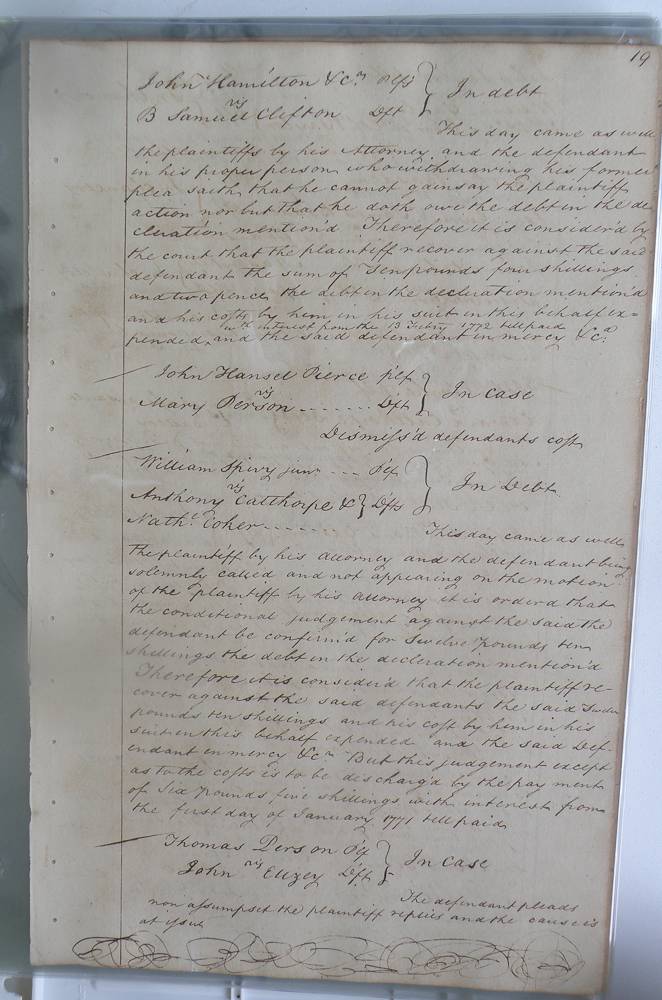 19
John Hamilton &c.a Plfs } In debt
vs
B Samuel Clifton Dft
This day came as well
the plaintiffs by his Attorney and the defendant
in his proper person who withdrawing his former
plea saith that he cannot gainsay the plaintiff
action nor but that he doth owe the debt in the de
claration mention'd Therefore it is consider'd by
the court that the plaintiff recover against the said
defendant the sum of Ten pounds four shillings
and two pence the debt in the declaration mention'd
and his costs by him in his suit in this behalf ex=
with interest from the 13 Febry 1772 till paid
pended, and the said defendant in mercy &c.a
John Hansel Pierce plf } In Case
vs
Mary Person ------- Dft
Dismiss'd defendants cost
William Spivy junr --- Plf } In Debt
vs
Anthony Calthorpe & } Dfts
Nath.l Coker -----
This day came as well
the plaintiff by his attorney and the defendant being
solemnly called and not appearing on the motion
of the plaintiff by his attorney it is orderd that
the conditional judgement against the said the
defendant be confirm'd for Twelve pounds ten
shillings the debt in the declaration mention'd
Therefore it is consider'd that the plaintiff re-
cover against the said defendants the said Twelve
pounds ten shillings and his cost by him in his
suit in this behalf expended and the said Def-
endant in mercy &c.a But this judgement except
as to the costs is to be discharg'd by the payment
of Six pounds five shillings with interest from
the first day of January 1771 till paid
Thomas Person Plf } In Case
vs
John Euzey Dft
The defendant pleads
non assumpset the plaintiff replies and the cause is
at issue